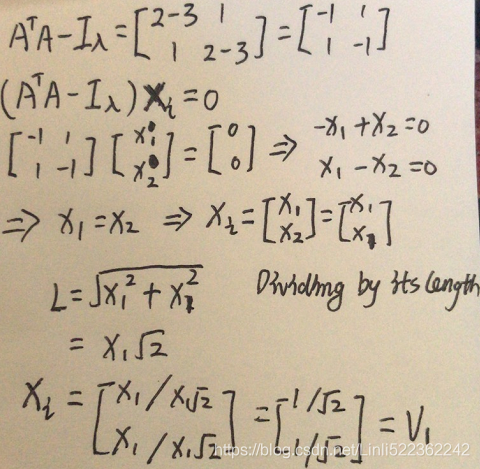 AᵀA - Iλ = [2-3 1; 1 2-3] = [-1 1; 1 -1]
(AᵀA - Iλ) Xᵢ = 0
[-1 1; 1 -1] [x₁; x₂] = [0; 0] ⇒ -x₁ + x₂ = 0
x₁ - x₂ = 0
⇒ x₁ = x₂ ⇒ Xᵢ = [x₁; x₂] = [x₁; x₁]
L = √(x₁² + x₁²) Dividing by its length
= x₁√2
Xᵢ = [x₁/x₁√2; x₁/x₁√2] = [1/√2; 1/√2] = V₁
https://blog.csdn.net/Linli522362242